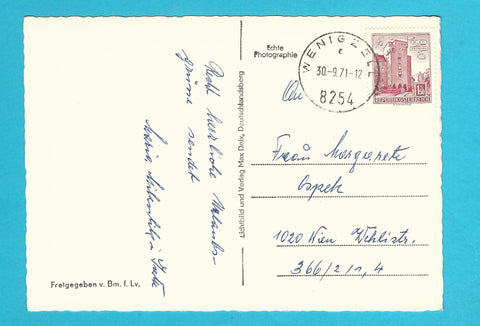 Recht herzliche Urlaubs-
grüsse sendet
Maria
Freigegeben v. Bm. f. Lv.
Lichtbild und Verlag Max Delx, Deutschlandsberg
Echte
Photographie
WENIGZELL
c
30.-9.71-12
8254
REPUBLIK ÖSTERREICH
An
Frau Margarete
Ospek
1020 Wien Wehlistr.
366/2/1, 4